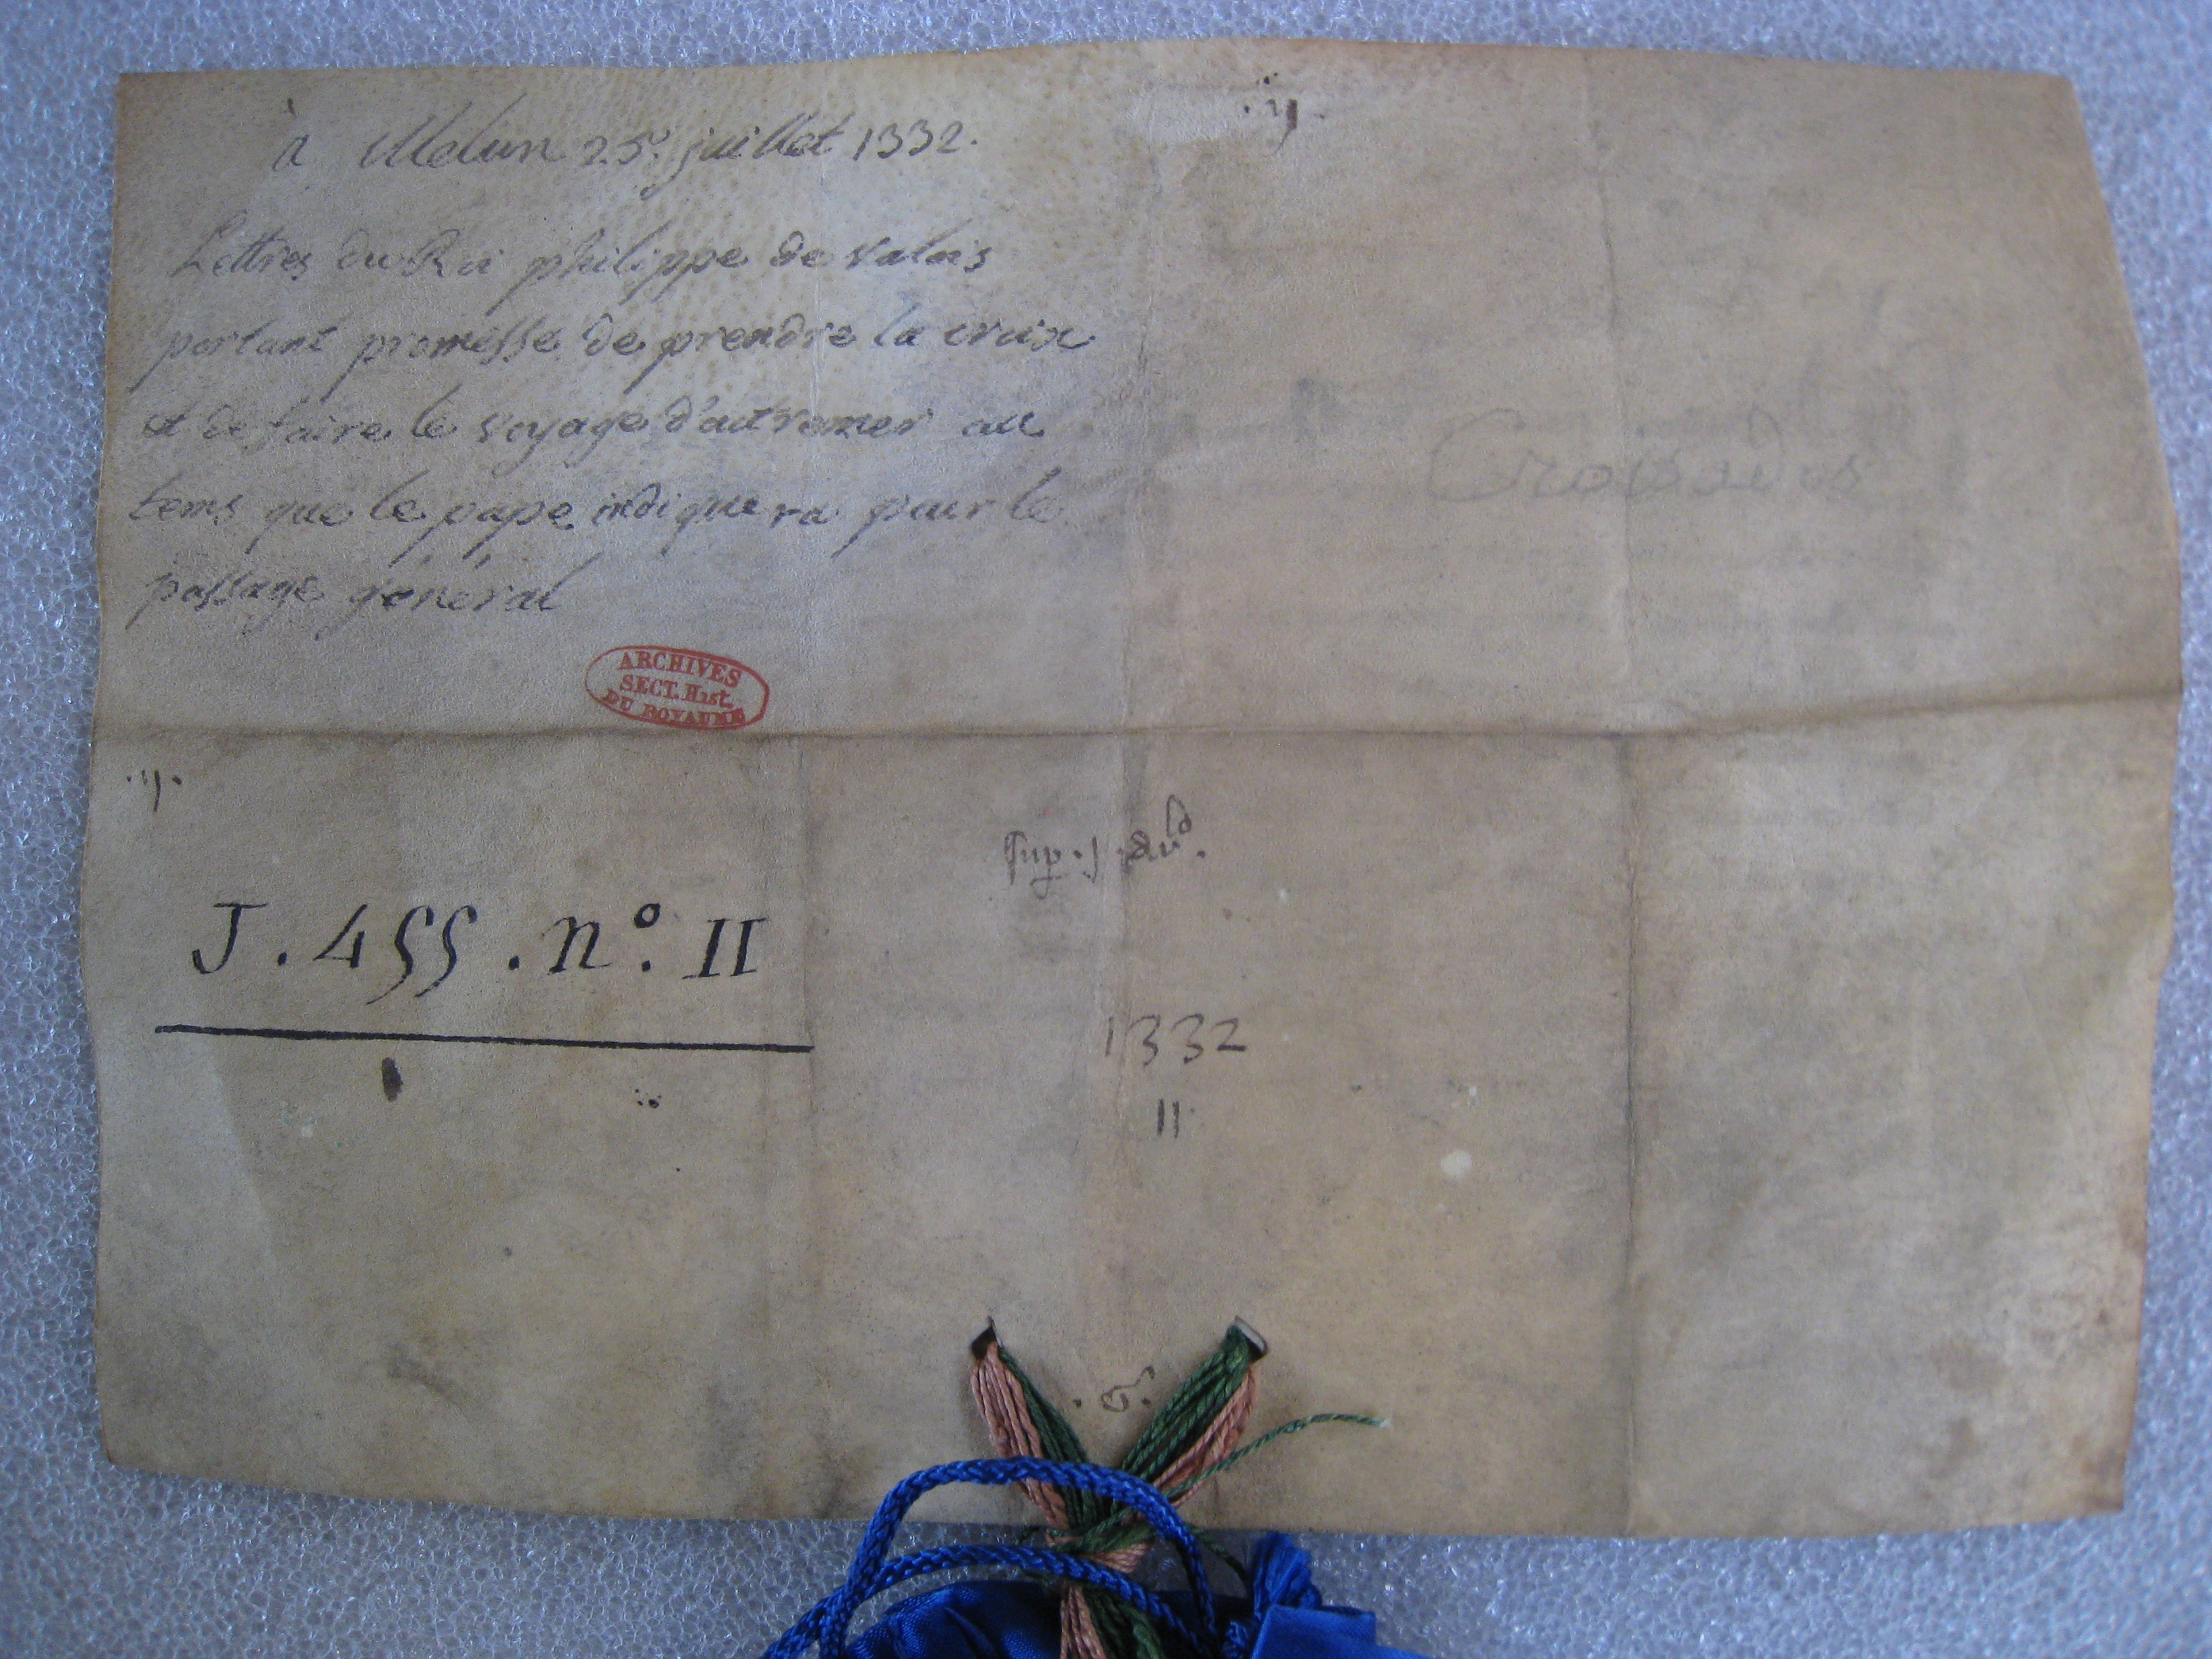 .ij.
à Melun 25e. juillet 1332.
Lettres du Roi philippe de valois
portant promesse de prendre la croix
et de faire le voyage d'outremer au
tems que le pape indiquera pour le
passage général
Croisades
ARCHIVES
SECT. Hist.
DU ROYAUME
.ij.
J. 455. n°. II
1332
11